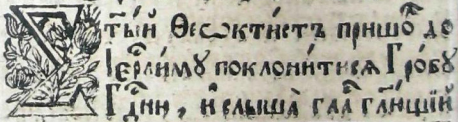 Ст҃ы́й Ѳеѡкти́стъ пришоⷣ до
Іерⷭ҇ли́му поклони́тисѧ Гро́бу
Гⷭ҇дни , и҆ слыша̀ глаⷭ҇ гл҃ющїй